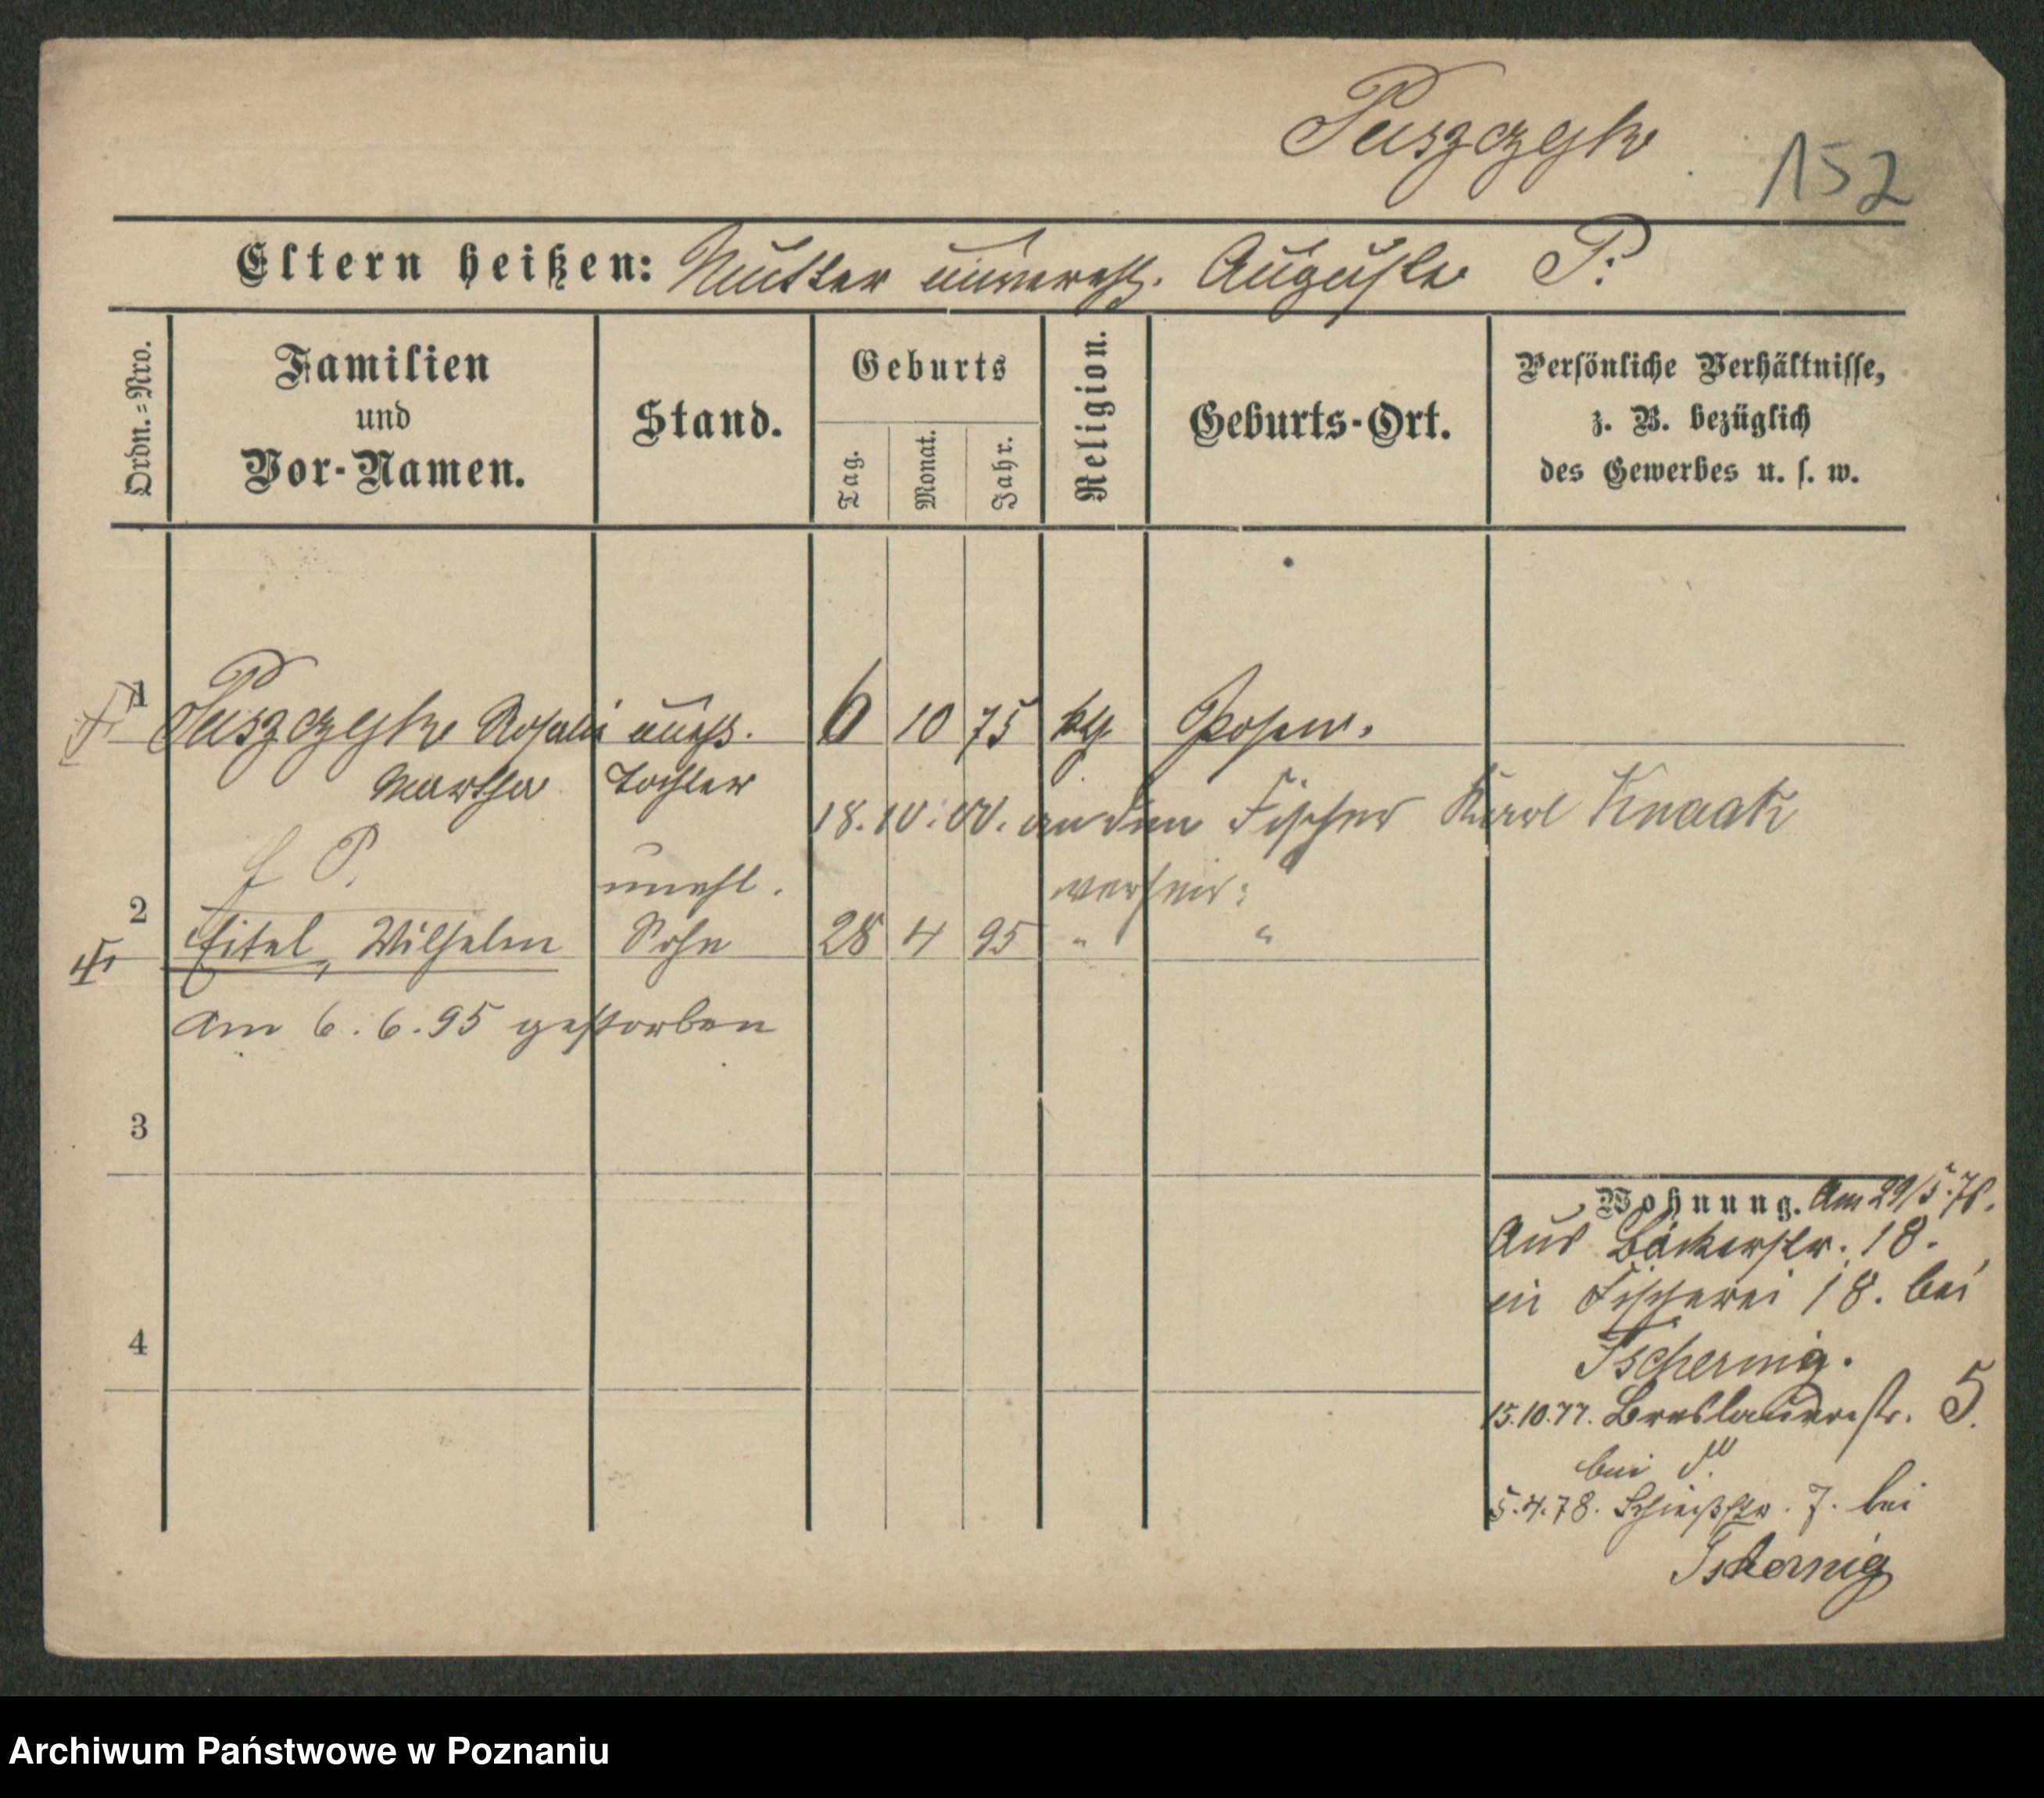 Puszczyk
152
Eltern heißen: Mutter unvereh. Auguste P.
Ordn.=Nro.
Familien
und
Vor-Namen.
Stand.
Geburts
Tag.
Monat.
Jahr.
Religion.
Geburts-Ort.
Persönliche Verhältnisse,
z. B. bezüglich
des Gewerbes u. s. w.
1 Puszczyk Rosalie 6 10 75 Posen.
Martha Tochter
18.10.00. an den Fischer Karl Knaak
P. unehl. verheir:
2 Eitel, Wilhelm Sohn 28 4 95 " "
Am 6.6.95 gestorben
3
4
Wohnung. Am 29/5.76.
Aus Bäckerstr. 18.
in Fischerei 18. bei
Tschernig.
15.10.77. Breslauerstr. 5.
bei
5.4.78. Schießstr. 7. bei
Tschernig
Archiwum Państwowe w Poznaniu